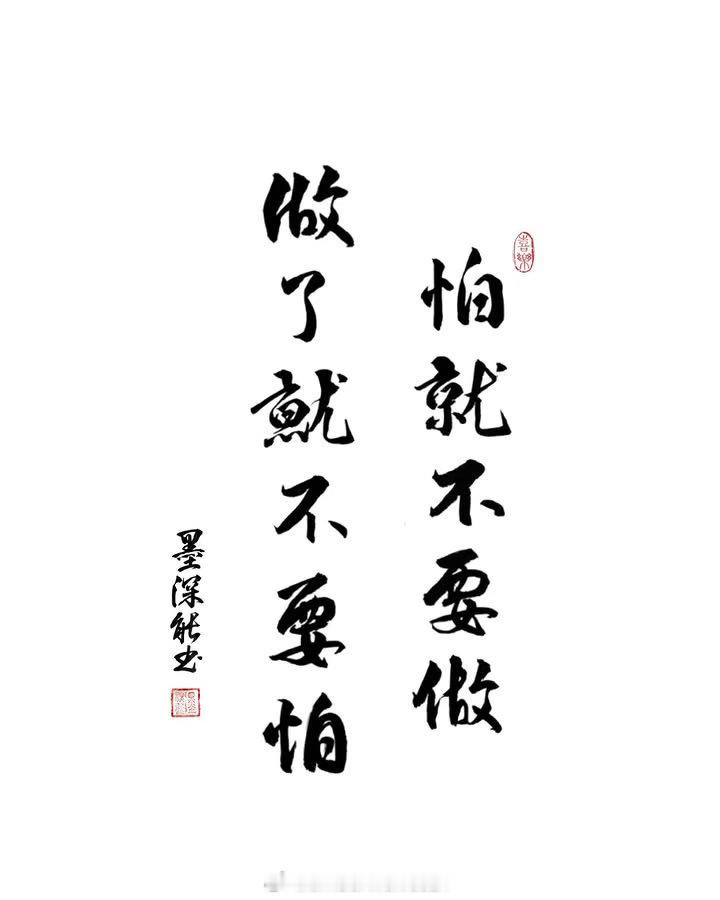 怕就不要做
做了就不要怕
墨深能书
喜樂